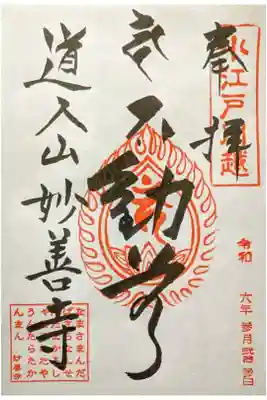 小江戸川越
奉拝
不動尊
道入山妙善寺
令和 六年
なまさまんだ
ばさらなんせ
んだまかろし
やだそわたや
うんたらたか
んまん 妙善寺